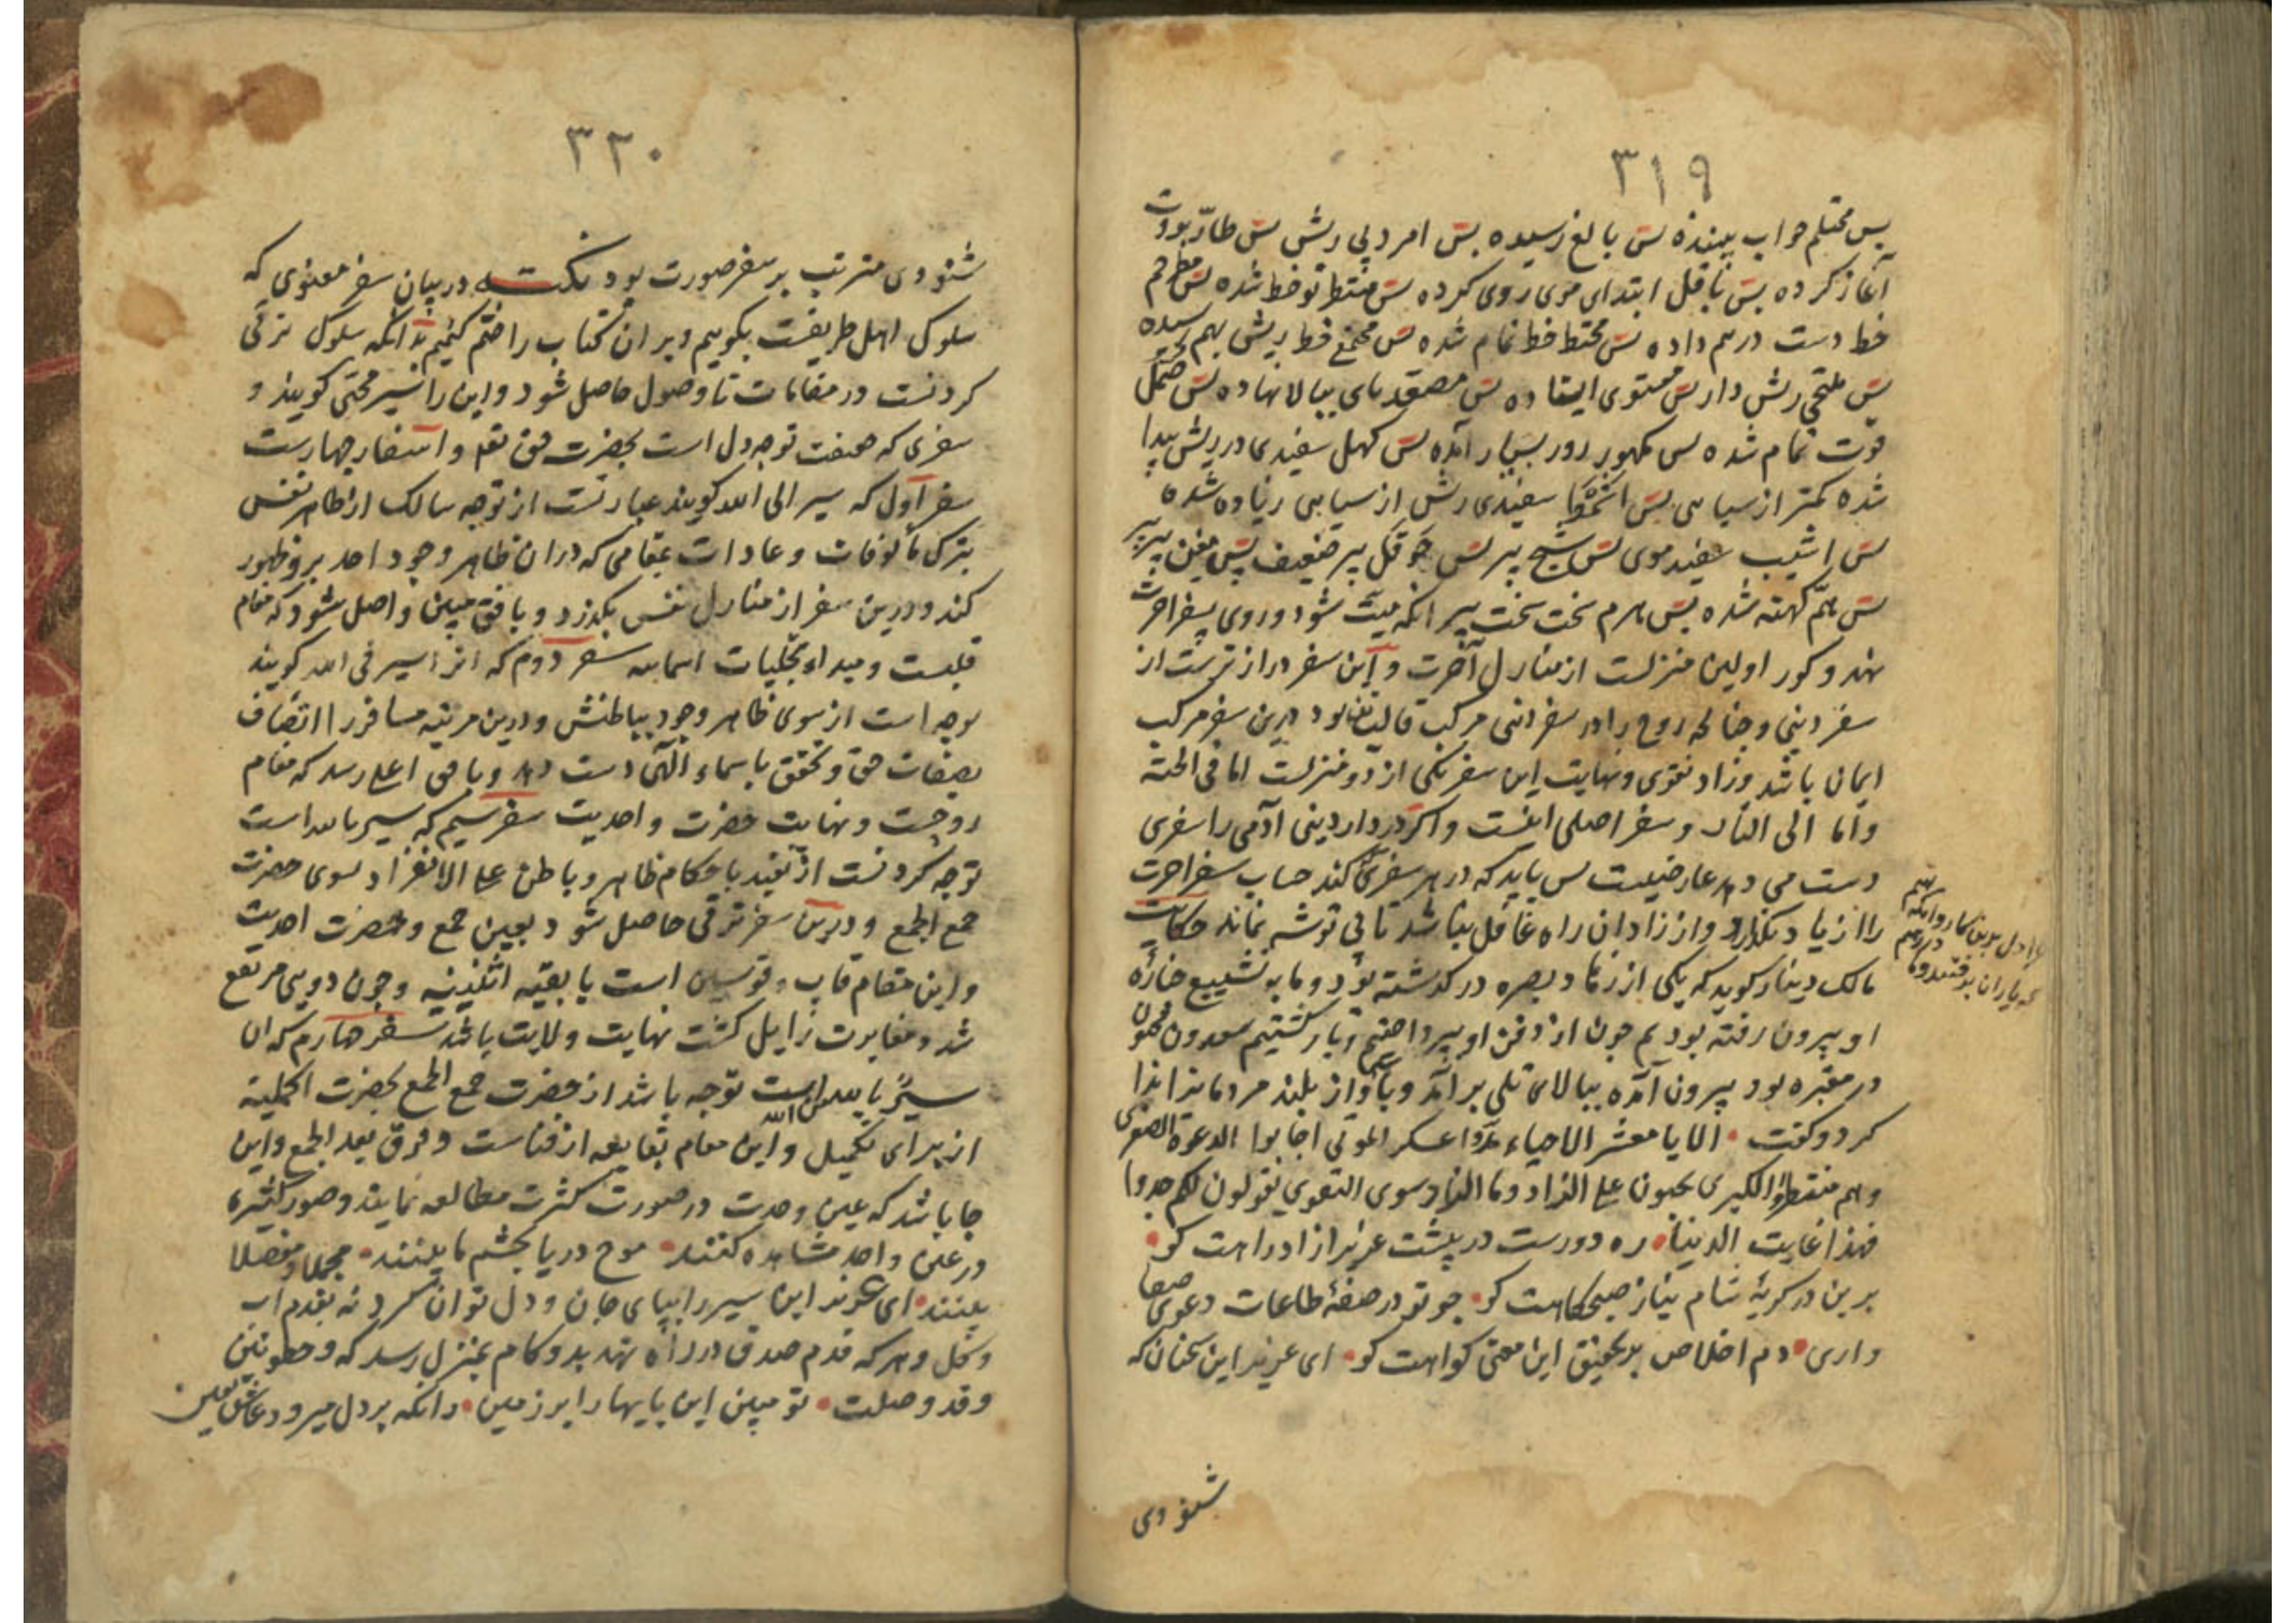 ٣١٩
پس محتلم خواب بیننده پس بالغ رسیده پس امرد بی ریش پس طارّ بروت
آغاز کرده پس باقل ابتدای موی روی کرده پس مختط نو خط شده پس مطرخم
خط دست در هم داده پس محتط خط تمام شده پس مجتمع خط ریش بهم رسیده
پس ملتحی ریش دار پس مستوی ایستاده پس مصعد پای ببالا نهاده پس صمل
قوت تمام شده پس مکهور روز بسیار آمده پس کهل سفیدی در ریش پیدا
شده کمتر از سیاهی پس اشمط سفیدی ریش از سیاهی زیاده شده
پس اشیب سفید موی پس شیخ پیر پس حوقل پیر ضعیف پس مفن پیر پیر
پس همّ کهنه شده پس هرم سخت سخت پیر آنکه میّت شود و روی بسفر آخرت
نهد و گور اولین منزلست از منازل آخرت و این سفر درازترست از
سفر دنیی و چنانچه روح را در سفر دنیی مرکب قالب بود درین سفر مرکب
ایمان باشد و زاد تقوی و نهایت این سفر یکی از دو منزلست اما فی الجنة
و اما الی النار و سفر اصلی اینست و اگر در دار دنیی آدمی را سفری
دست می دهد عارضیست پس باید که در هر سفری که کند حساب سفر آخرت
را از یاد نگذارد و از زاد آن راه غافل نباشد تا بی توشه نماند حکایت
مالک دینار گوید که یکی از زهاد بصره در گذشته بود و ما به تشییع جنازه
او بیرون رفته بودیم چون از دفن او پرداختیم و باز گشتیم سعدون مجنون
در مقبره بود بیرون آمده ببالای تلی برآمد و بآواز بلند مردمانرا ندا
کرد و گفت • الا یا معشر الاحیاء هذا عسکر الموتی اجابوا الدعوة الصغری
و هم منتظروا الکبری یحثون علی الزاد و ما الزاد سوی التقوی یقولون لکم جدوا
فهذا غایت الدنیا • ره دورست در پیشت عزیزا زاد راهت کو •
برین درگریهٔ شام و نیاز صبحگاهت کو • چو تو در صفهٔ طاعات دعوی صفا
داری • دم اخلاص بر تحقیق این معنی گواهت کو • ای عزیز این سخنان که
شنودی
٣٢٠
شنودی مترتب بر سفر صورت بود نکته در بیان سفر معنوی که
سلوک اهل طریقت بگوییم و بر آن کتاب را ختم کنیم بدانکه سلوک ترقی
کردنست در مقامات تا وصول حاصل شود و این را سیر محبی گویند و
سفری که صفت توجه دل است بحضرت حق تعلی و اسفار چهارست
سفر اول که سیر الی الله گویند عبارتست از توجه سالک از ظاهر نفس
بترک مألوفات و عادات بمقامی که در آن ظاهر وجود احد بر و ظهور
کند و درین سفر از منازل نفس بگذرد و بافق مبین واصل شود که مقام
قلبست و مبداء تجلیات اسمائیه سفر دوم که انرا سیر فی الله گویند
توجه است از سوی ظاهر وجود بباطنش و درین مرتبه مسافر را اتصاف
بصفات حق و تحقق باسماء الهی دست دهد و بافق اعلی رسد که مقام
روحست و نهایت حضرت واحدیت سفر سیم که سیر بالله است
توجه کردنست از تقید باحکام ظاهر و باطن علی الانفراد بسوی حضرت
جمع الجمع و درین سفر ترقی حاصل شود بعین جمع و حضرت احدیت
و این مقام قاب قوسین است با بقیه اثنینیه و چون دویی مرتفع
شد و مغایرت زایل گشت نهایت ولایت باشد سفر چهارم که ان
سیر بالله عن الله است توجه باشد از حضرت جمع الجمع بحضرت اکملیة
از برای تکمیل و این مقام بقایعد از فناست و فرق بعد الجمع و این
جا باشد که عین وحدت در صورت کثرت مطالعه نمایند و صور کثیره
در عین واحد مشاهده کنند • موج دریا بچشم ما بینند • مجملا و مفصلا
بینند • ای عزیز این سیر را بپای جان و دل توان کرد نه بقدم آب
و گل و هر که قدم صدق در راه نهد بدو گام بمنزل رسد که و خطوتین
و قد وصلت • تو مبین این پایها را بر زمین • زانکه بر دل میرود عاشق یقین